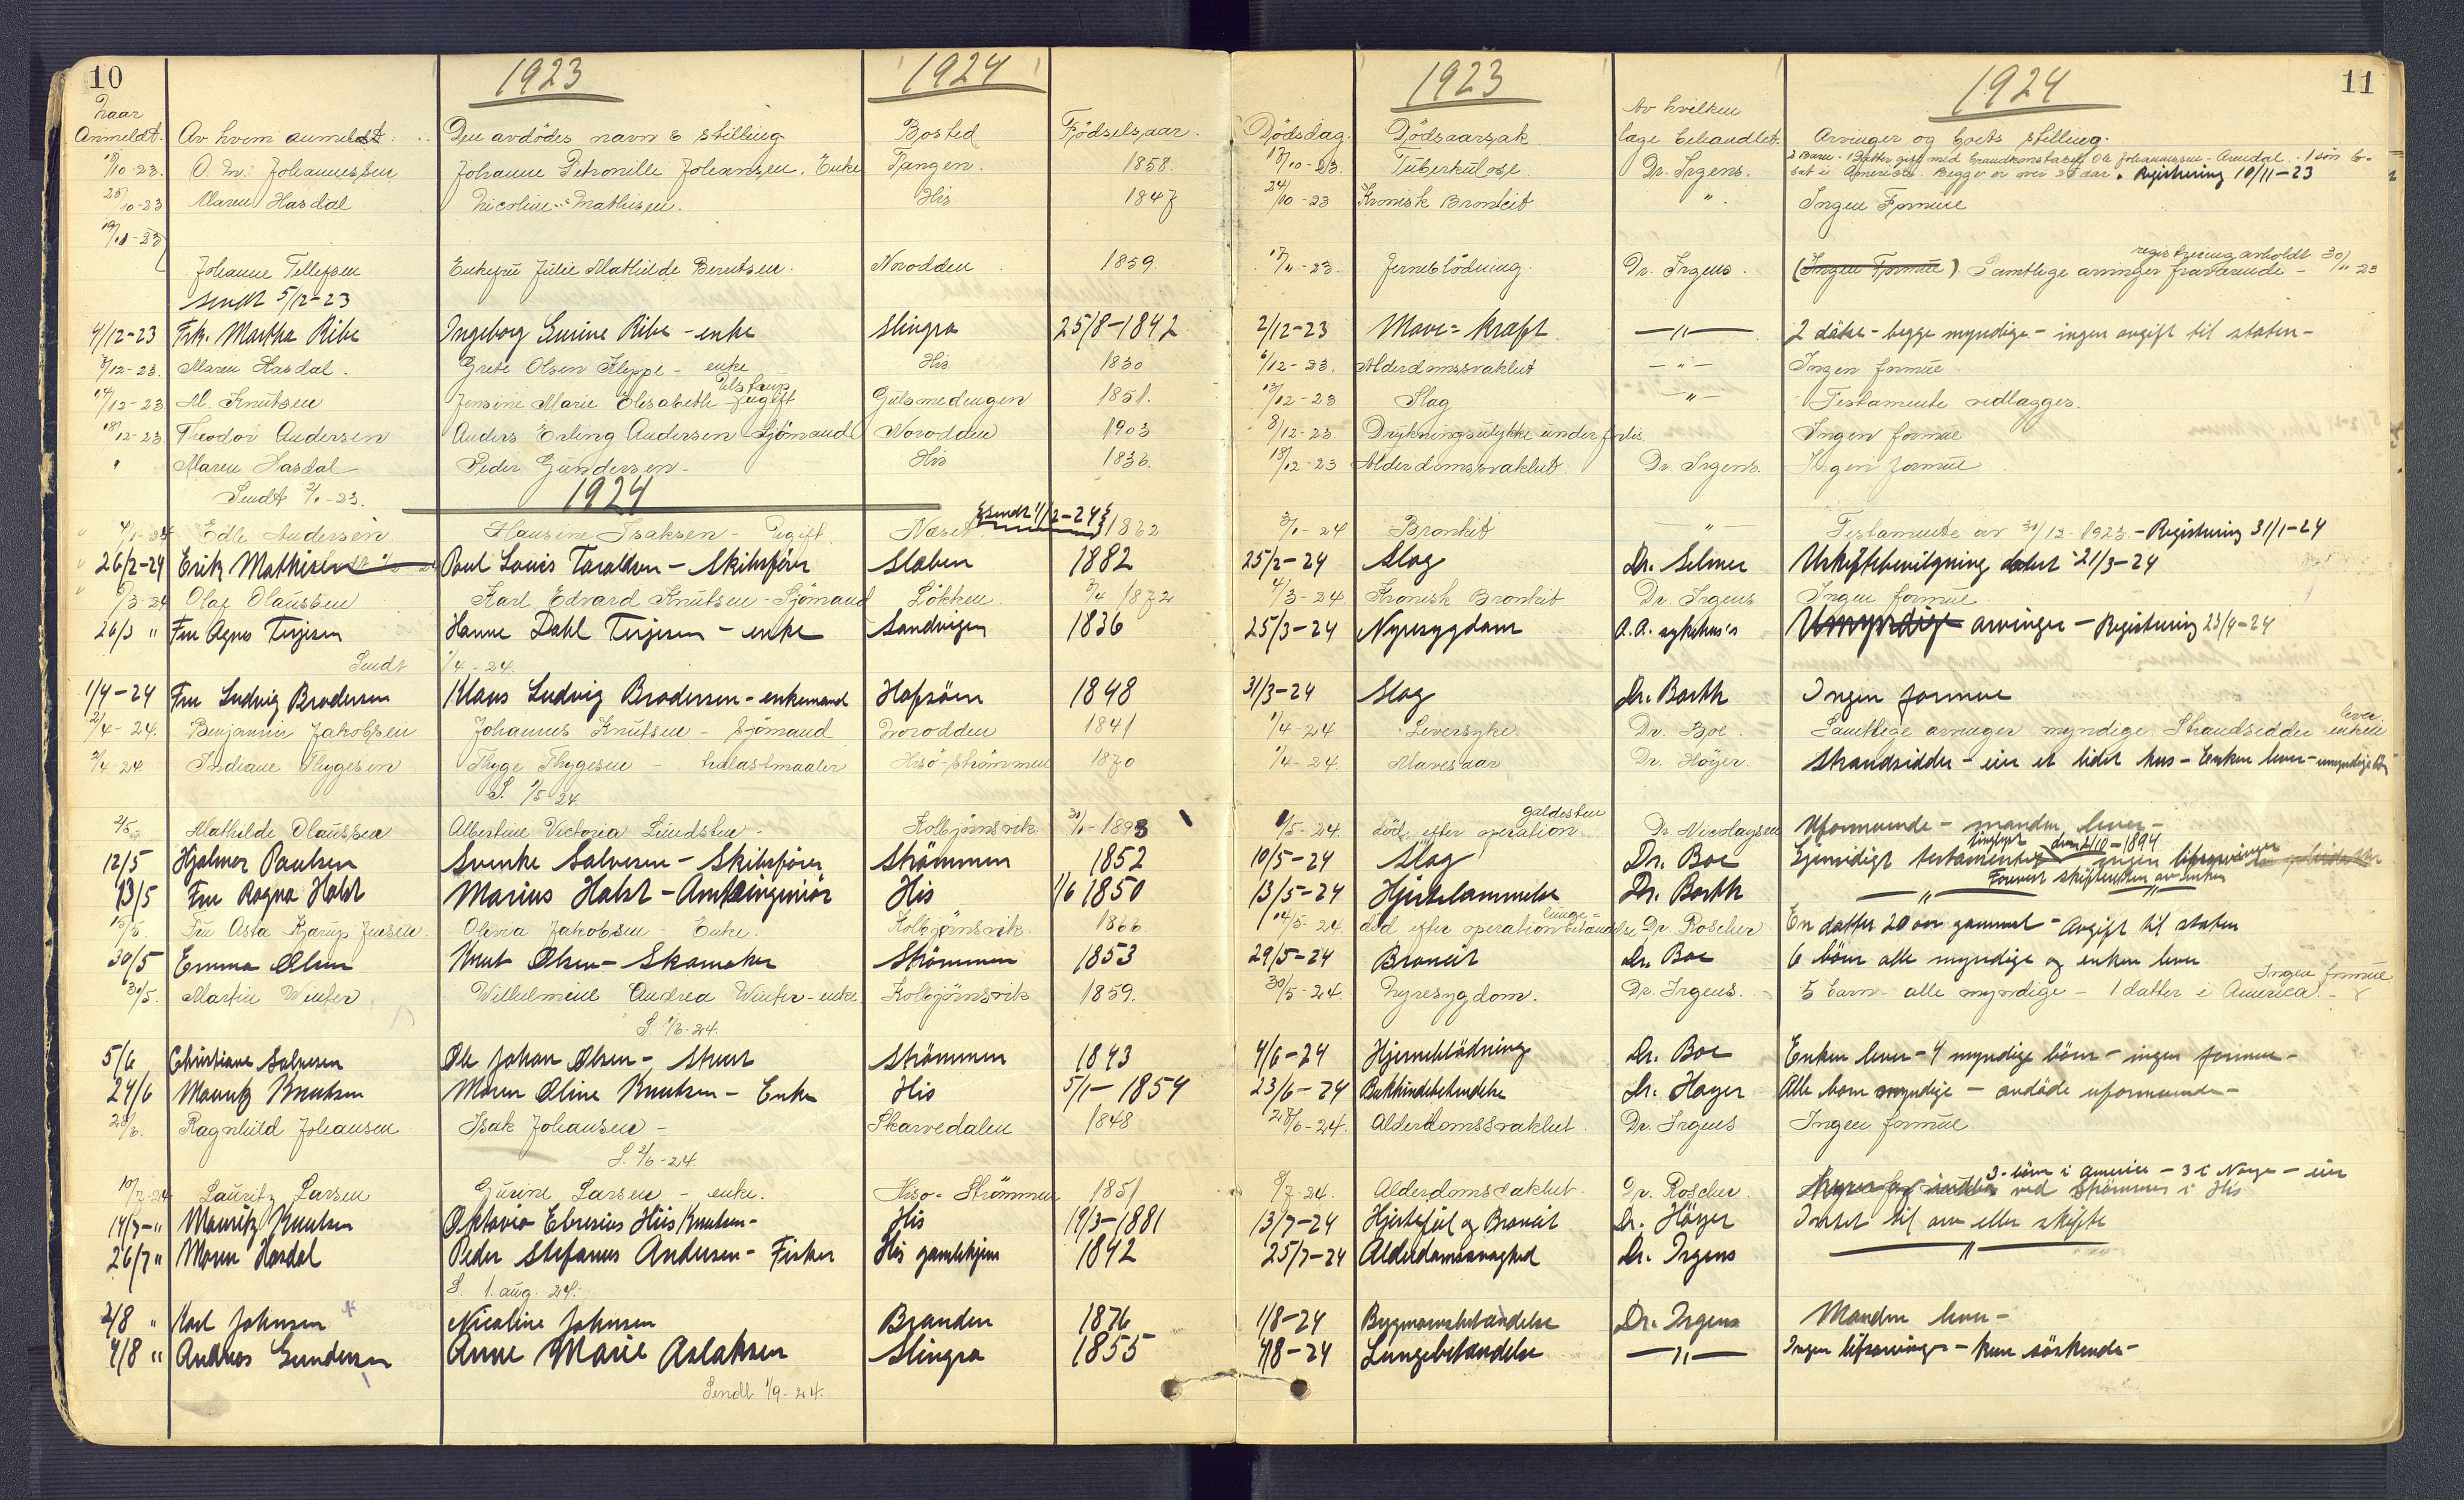 10 1923 1924 1923 1924 11
Naar Av hvilken
Anmeldt. Av hvem anmeldt. Den avdödes navn & stilling. Bosted Födselsaar. Dödsdag. Dödsaarsak læge behandlet. Arvinger og boets stilling.
2 Barn. 1 Datter gift med brandkonstabel Ole Johannessen - Arendal. 1 sön bo-
19/10-23. O. M. Johannessen Johanne Petronille Johansen. Enke Tangen. 1858. 17/10-23 Tuberkulose. Dr. Irgens. sat i America. Begge er over 20 aar. Registrering 10/11-23
25/10-23 Maren Hasdal Nicoline Mathisen. His 1847 24/10-23 Kronisk Bronkit " Ingen Formue
19/11-23
registrering avholdt 30/11 23
Johanne Tellefsen Enkefru Julie Mathilde Berntsen. Norodden 1859. 17/11-23. Jerneblödning. Dr. Irgens. (Ingen Formue) Samtlige arvinger fraværende -
sendt 5/12-23
4/12-23 Frk. Martha Ribe Ingeborg Gurine Ribe - enke Slingra 25/8-1842 2/12-23 Mave-kræft —"— 2 dötre - begge myndige - ingen avgift til staten -
7/12-23. Maren Hasdal. Grete Olsen Kleppe - enke His 1830 6/12-23. Alderdomssvakhet —"— Ingen formue.
14/12-23 M. Knutsen Jensine Marie Elisabeth Ulstrup - Ugift Gulsmedengen 1851. 13/12-23 Slag —"— Testamente vedlægges.
18/12-23 Theodor Andersen Anders Erling Andersen - Sjömand Norodden 1903 8/12-23 Drukningsulykke under forlis Ingen formue
" Maren Hasdal Peder Gundersen - His 1836. 18/12-23 Alderdomssvakhet Dr Irgens. Ingen formue
Sendt 2/1-23.
1924
Sendt 1/2-24
4/1-24 Edle Andersen Hansine Isaksen - Ugift Næset 1862 3/1-24 Bronkit " Testamente av 30/12 1923. - Registrering 31/1-24
26/2-24 Erik Mathisen Paul Louis Taraldsen - Skibsförer Staben 1882 25/2-24 Slag Dr. Selmer Uskiftebevilgning datert 21/3-24
6/3-24 Olaf Olaussen Karl Edvard Knutsen - Sjömand Lökken 3/4 1872 4/3-24. Kronisk Bronkit Dr. Irgens Ingen formue
26/3 " Fru Agnes Terjesen Hanne Dahl Terjesen - enke Sandvigen 1836 25/3-24 Nyresygdom A.A. sykehus's Umyndige arvinger - Registrering 23/4-24
Sendt 1/4-24.
1/4-24 Fru Ludvig Brodersen Klaus Ludvig Brodersen - enkemand Hafsöen 1848 31/3-24 Slag Dr. Barth Ingen formue
2/4-24. Benjamin Jakobsen Johannes Knutsen - Sjömand Norodden 1841 1/4-24 Leversyke Dr. Boe Samtlige arvinger myndige. Strandsidder enken lever.
3/4-24 Indiane Thygesen Thyge Thygesen - Hisö-Strömmen 1870 1/4-24. Mavesaar Dr. Höyer. Strandsidder - eier et lidet hus - Enken lever -
S. 1/5-24.
2/5. Mathilde Olaussen Albertine Victoria Lindsten - Kolbjörnsvik 1893 1/5-24. död efter galdesten operation. Dr. Nicolaysen Uformuende - manden lever -
12/5 Hjalmar Paulsen Svenke Salvesen - Skibsförer Strömmen 1852 10/5-24 Slag Dr. Boe Gjensidigt testamente tinglyst 1894 ingen livsarvinger
Forevist skifteretten av enken
13/5 Fru Ragna Holst Marius Holst - Amtsingeniör His 1/6 1850 13/5-24 Hjertelammelse Dr. Barth —"— "
15/5. Fru Asta Kjærup Jensen. Olivia Jakobsen - Enke. Kolbjörnsvik 1866 14/5-24. död efter operation lunge-betændelse Dr. Roscher En datter 20 aar gammel - Avgift til staten
30/5 Emma Olsen Knut Olsen - Skomaker Strömmen 1853 29/5-24 Broncit Dr. Boe 6 börn alle myndige og enken lever
30/5. Martin Winter. Wilhelmine Andrea Winter - enke Kolbjörnsvik 1859. 30/5-24. Nyresygdom. Dr. Irgens. 5 barn - alle myndige - 1 datter i America. - Ingen formue
S. 1/6-24.
5/6 Christiane Salvesen Ole Johan Olsen - Strömmen 1843 4/6-24 Hjerneblödning Dr. Boe Enken lever - 4 myndige börn - ingen formue -
24/6 Mauritz Knutsen Maren Oline Knutsen - Enke His 5/1-1854 23/6-24 Bukhindebetændelse Dr. Høyer Alle barn myndige - avdöde uformuende -
28/6. Ragnhild Johansen Isak Johansen - Skarvedalen 1848 28/6-24. Alderdomssvakhet. Dr. Irgens Ingen formue
S. 2/6-24.
3 börn i America - 3 i Norge - eier
10/7-24 Lauritz Larsen Gurine Larsen - enke. Hisö-Strömmen 1851 9/7-24. Alderdomssvakhet. Dr. Roscher. ved Strömmen i His
14/7-" Mauritz Knutsen Oktavia Elvesius Hiis Knutsen - His 19/3-1881 13/7-24 Hjertefeil og Broncit Dr. Höyer Intet til arv eller skifte
26/7 " Maren Hasdal Peder Stefanus Andersen - Fisker His gamlehjem 1842 25/7-24 Alderdomssvaghed Dr. Irgens —"—
S. 1. aug. 24.
2/8 " Karl Johnsen Nicoline Johnsen Branden 1876 1/8-24 Dr. Irgens Manden lever -
4/8 " Andreas Gundersen Anne Marie Aslaksen Slingra 1855 4/8-24 Lungebetændelse —"— Ingen livsarvinger - kun söskende -
Sendt 1/9-24.